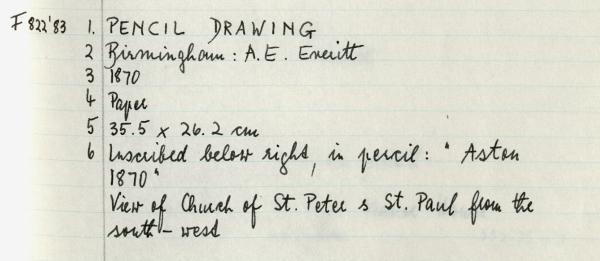 F 822'83 1. PENCIL DRAWING
2 Birmingham : A.E. Everitt
3 1870
4 Paper
5 35.5 x 26.2 cm
6 Inscribed below right, in pencil: "Aston
1870"
View of Church of St. Peter & St. Paul from the
south-west